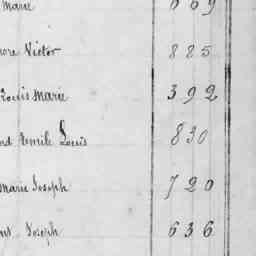 Marie 669
ore Victor 885
Louis Marie 392
nd Emile Louis 830
Marie Joseph 720
Joseph 636